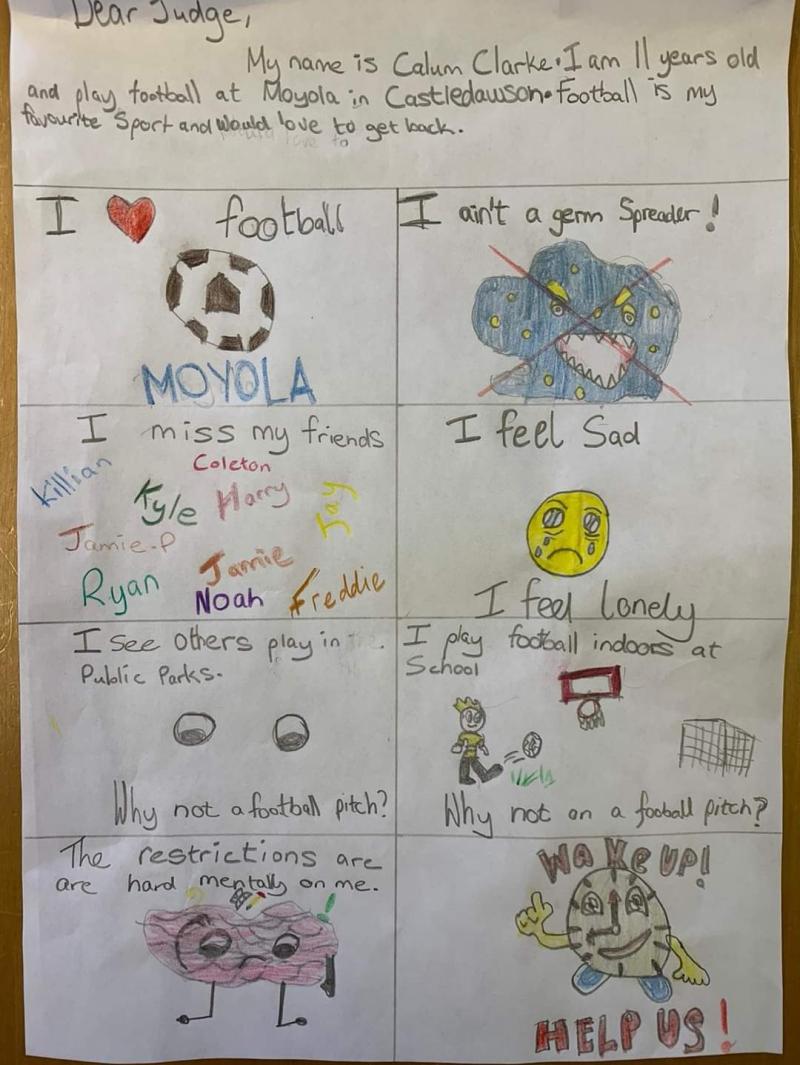 Dear Judge,
My name is Calum Clarke. I am 11 years old
and play football at Moyola in Castledawson. Football is my
favourite Sport and would love to get back.
I ❤ football
MOYOLA
I ain't a germ Spreader!
I miss my friends
Killian
Coleton
Kyle
Harry
Jay
Jamie.P
Jamie
Ryan
Noah
Freddie
I feel Sad
I feel lonely
I see others play in
Public Parks.
Why not a football pitch?
I play football indoors at
School
Why not on a fooball pitch?
The restrictions are
are hard mentally on me.
WaKe UP!
HELP US!